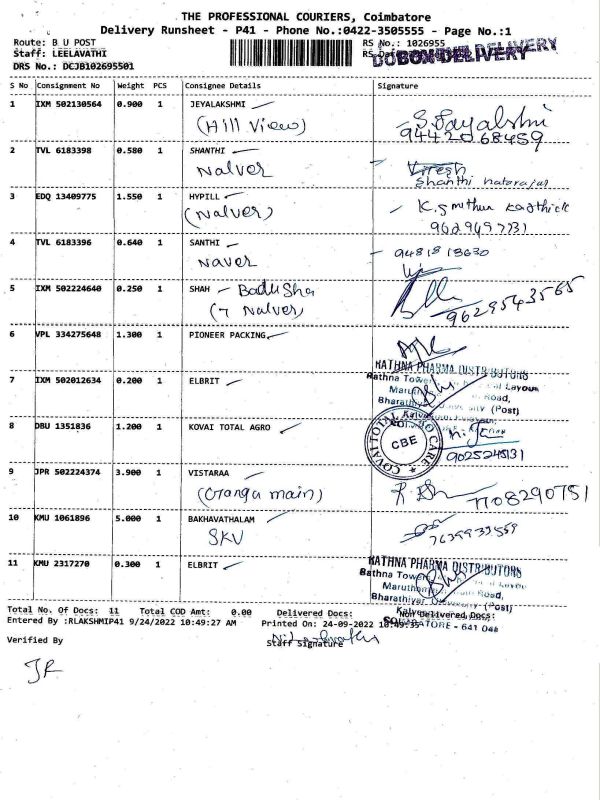 THE PROFESSIONAL COURIERS, Coimbatore
Delivery Runsheet - P41 - Phone No.:0422-3505555 - Page No.:1
Route: B U POST
RS No.: 1026955
Staff: LEELAVATHI
BOX DELIVERY
DRS No.: DCJB102695501
S No Consignment No Weight PCS Consignee Details Signature
1 IXM 502130564 0.900 1 JEYALAKSHMI
(Hill View)
9442068459
2 TVL 6183398 0.580 1 SHANTHI
Nalver
Shanthi natarajan
3 EDQ 13409775 1.550 1 HYPILL
(Nalver)
9629497731
4 TVL 6183396 0.640 1 SANTHI
Naver
9481813630
5 IXM 502224640 0.250 1 SHAH Badusha
(7 Nalver)
9629543565
6 VPL 334275648 1.300 1 PIONEER PACKING
RATHNA PHARMA DISTRIBUTORS
7 IXM 502012634 0.200 1 ELBRIT
Rathna Tower
Road,
Bharathiyar University (Post)
8 DBU 1351836 1.200 1 KOVAI TOTAL AGRO
COVAI TOTAL AGRO CARE
CBE
9 JPR 502224374 3.900 1 VISTARAA
(Oranga main)
7708290751
10 KMU 1061896 5.000 1 BAKHAVATHALAM
SKV
7639933559
11 KMU 2317270 0.300 1 ELBRIT
RATHNA PHARMA DISTRIBUTORS
Rathna Tower
Road,
Bharathiyar University (Post)
COIMBATORE - 641 046
Total No. Of Docs: 11 Total COD Amt: 0.00 Delivered Docs: Not Delivered Docs:
Entered By :RLAKSHMIP41 9/24/2022 10:49:27 AM Printed On: 24-09-2022 10:49:35
Verified By Staff Signature
JR